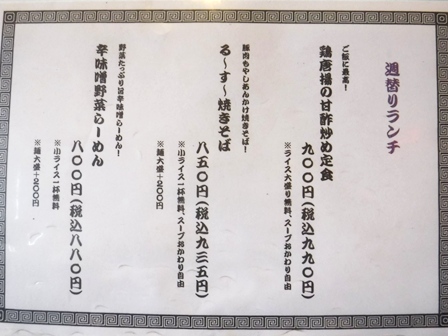 週替りランチ
ご飯に最高!
鶏唐揚の甘酢炒め定食
九〇〇円(税込九九〇円)
※ライス大盛り無料、スープおかわり自由
豚肉もやしあんかけ焼きそば!
る~す~焼きそば
八五〇円(税込九三五円)
※小ライス一杯無料、スープおかわり自由
※麺大盛+200円
野菜たっぷり旨辛味噌らーめん!
辛味噌野菜らーめん
八〇〇円(税込八八〇円)
※小ライス一杯無料
※麺大盛+200円